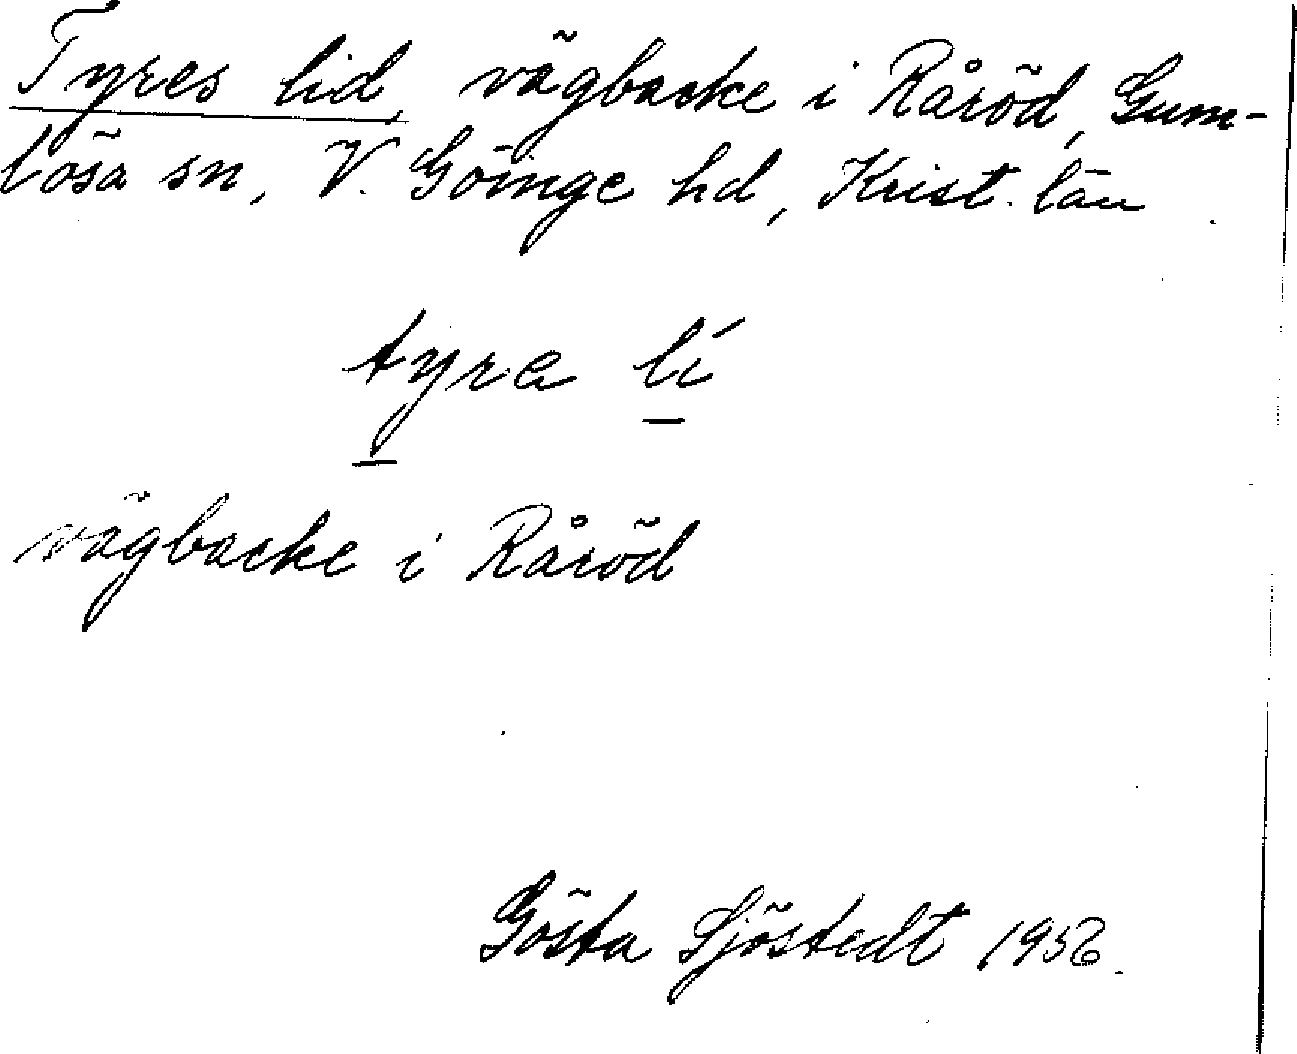 Tyres lid, vägbacke i Råröd, Gum-
lösa sn, V. Göinge hd, Krist. län
tyra lí
vägbacke i Råröd
Gösta Sjöstedt 1956.